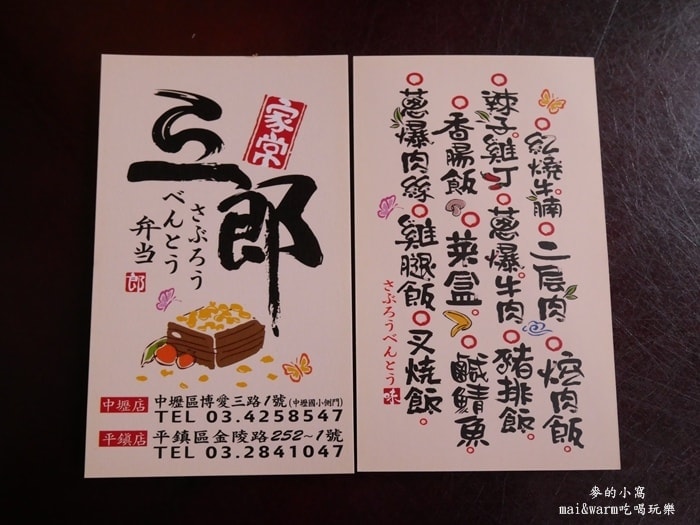 家常
三郎
さぶろう
べんとう
弁当
郎
中壢店 中壢區博愛三路1號(中壢國小側門)
TEL 03.4258547
平鎮店 平鎮區金陵路252~1號
TEL 03.2841047
紅燒牛腩。二层肉 焢肉飯。
辣子雞丁 蔥爆牛肉 豬排飯。
香腸飯 菜盒 鹹鯖魚。
蔥爆肉絲 雞腿飯 叉燒飯。
さぶろうべんとう 味
麥的小窩
mai&warm吃喝玩樂